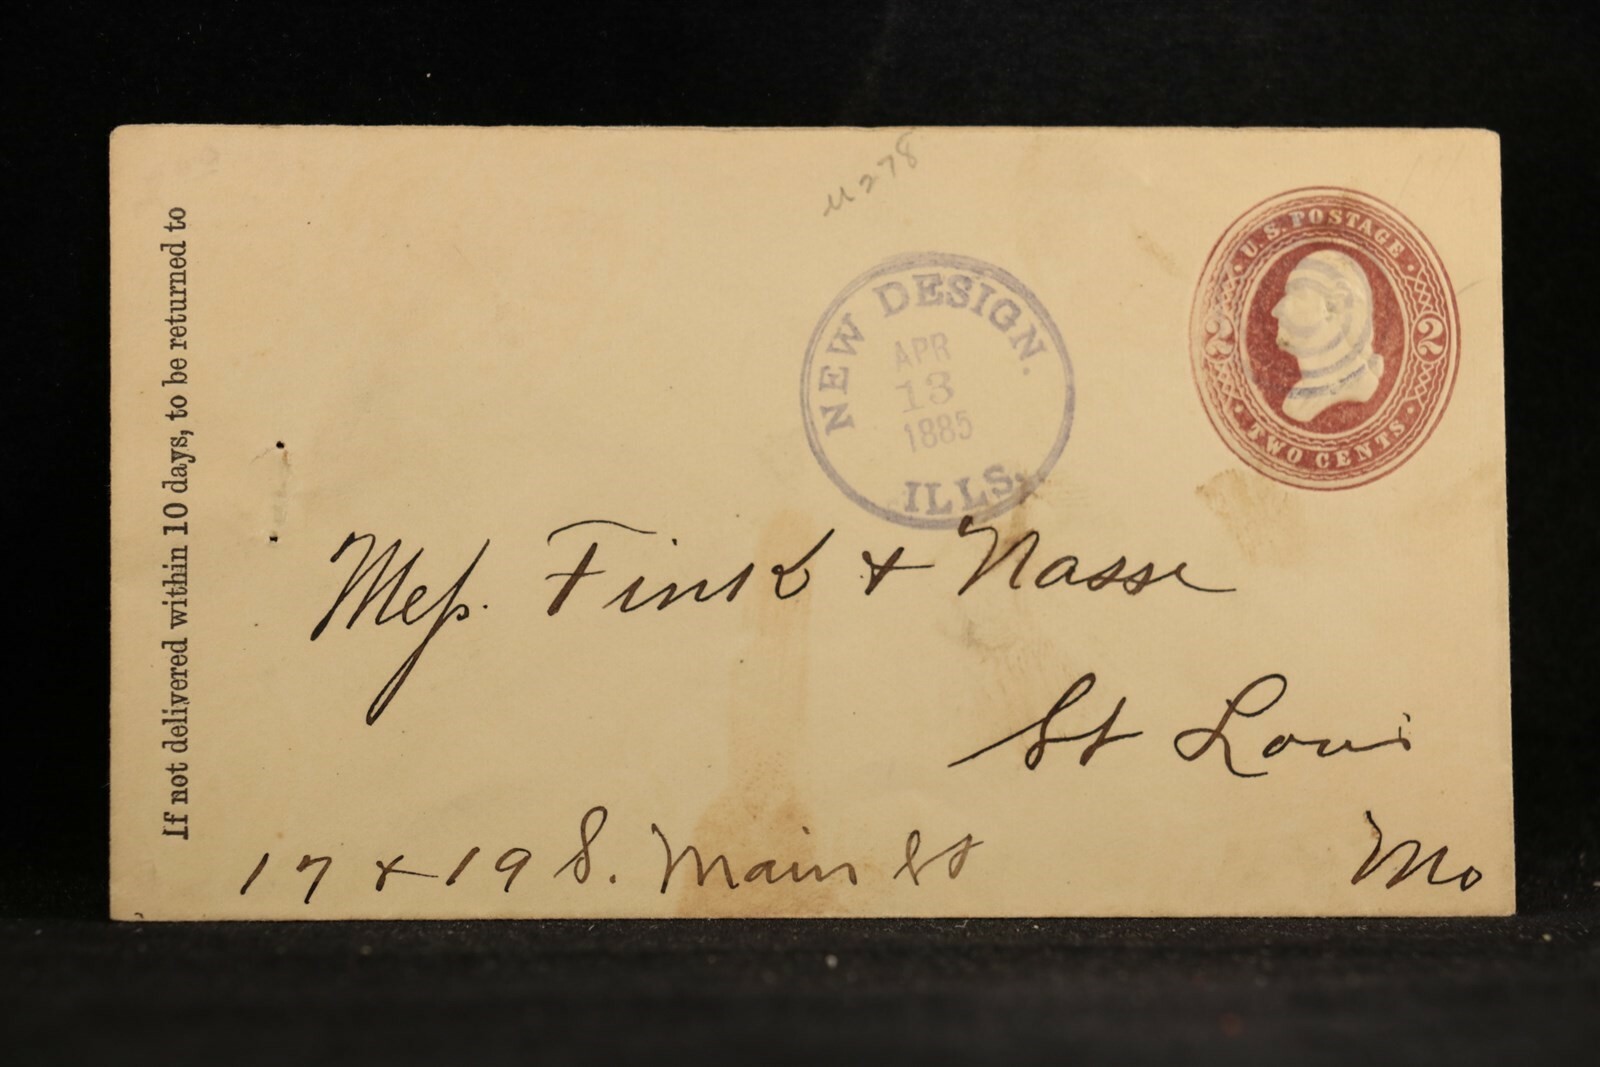 U278
U.S. POSTAGE
2 2
TWO CENTS
NEW DESIGN.
APR
13
1885
ILLS.
If not delivered within 10 days, to be returned to
Mess. Fink & Nasse
St Louis
17 & 19 S. Main St
Mo